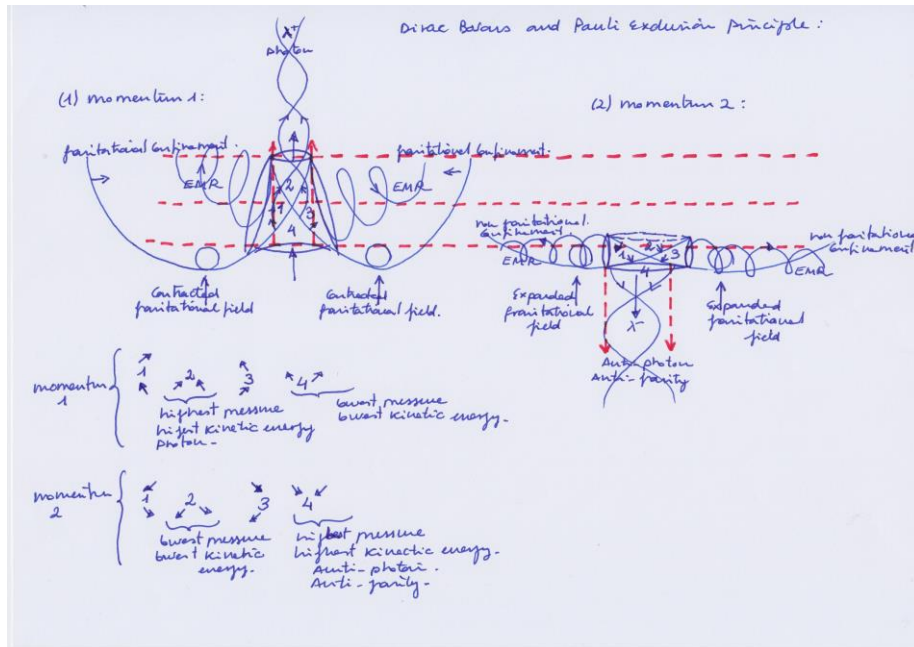 Dirac Bosons and Pauli Exclusion Principle:
χ+
photon
(1) momentum 1:
(2) momentum 2:
gravitational confinement.
gravitational confinement.
EMR
EMR
2
1
3
4
Contracted
gravitational field
Contracted
gravitational field.
non gravitational
confinement
non gravitational
confinement
EMR
EMR
1
2
3
4
Expanded
gravitational
field
Expanded
gravitational
field
χ-
Anti-photon
Anti-gravity
momentum
1
1
2
3
4
highest pressure
highest kinetic energy
photon-
lowest pressure
lowest kinetic energy-
momentum
2
1
2
3
4
lowest pressure
lowest kinetic
energy-
highest pressure
highest kinectic energy-
Anti-photon.
Anti-gravity-